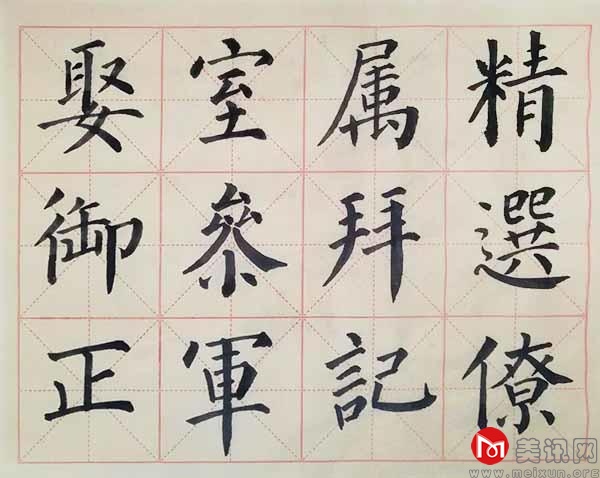 精選僚
属拜記
室參軍
娶御正
美讯网
www.meixun.org